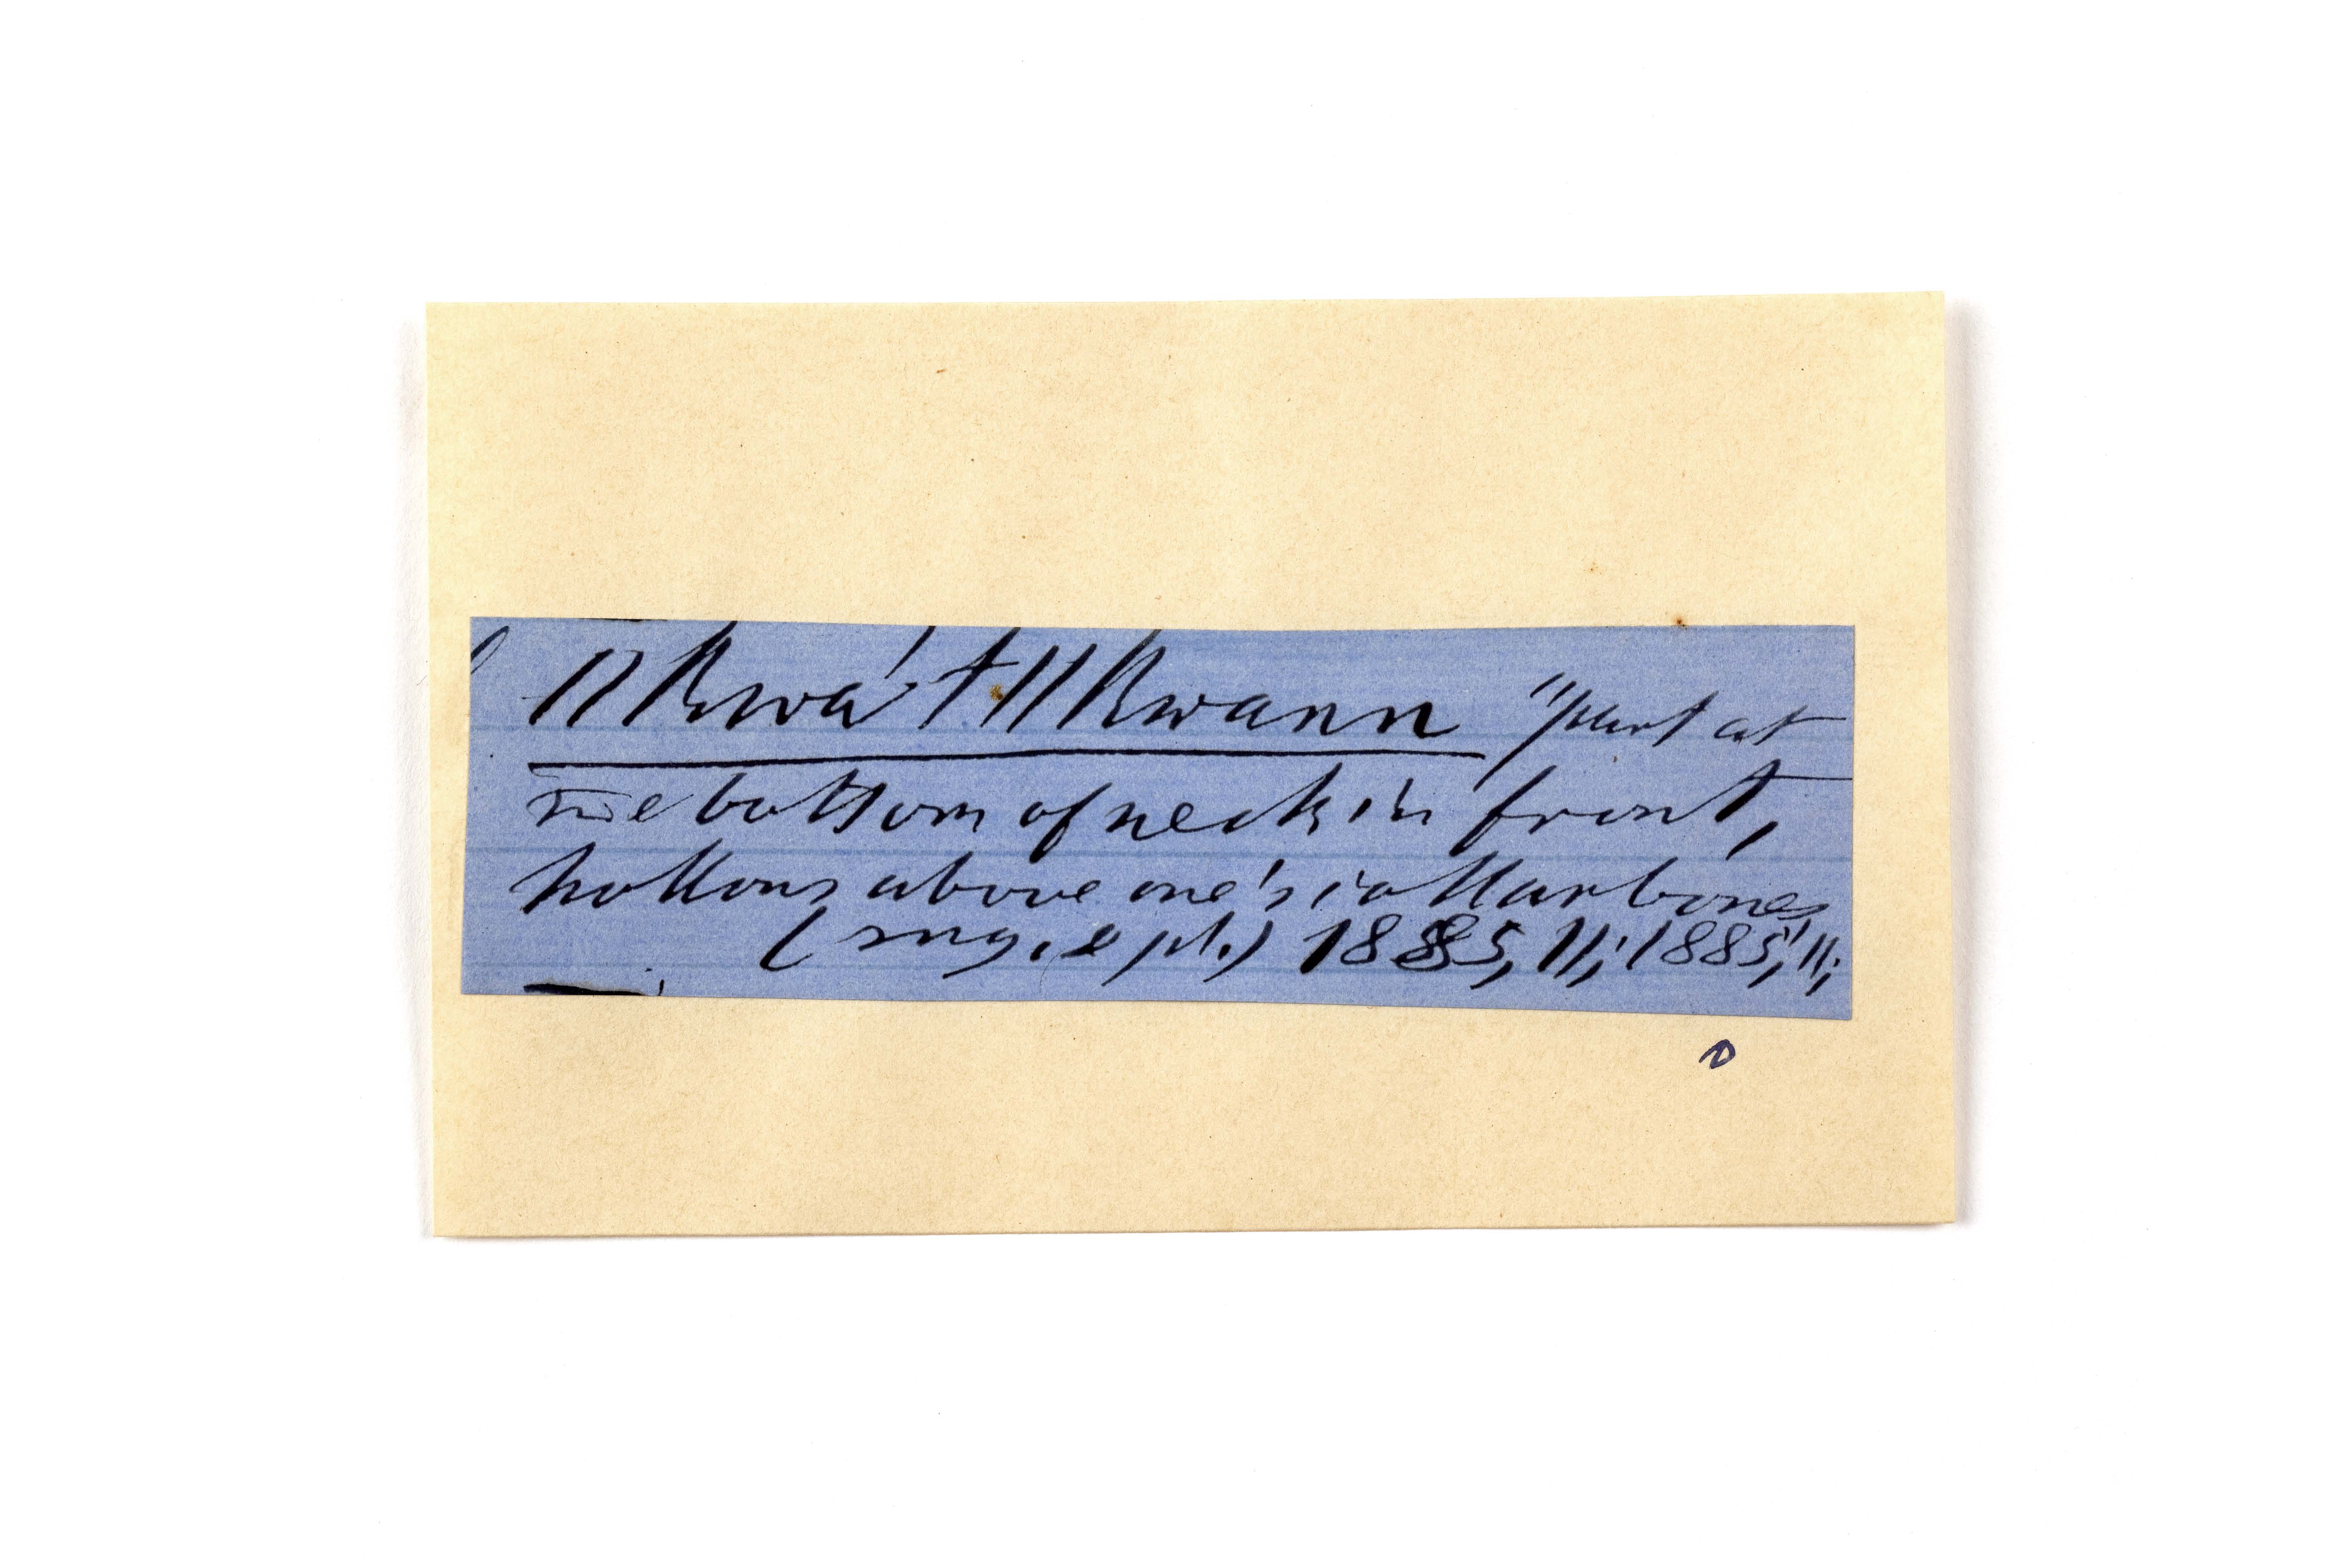 ǁkwá tǁkwann "part at
the bottom of neck in front,
hollows above one's collar bones
(sing. & pl.) 1885, 11; 1885', 11;